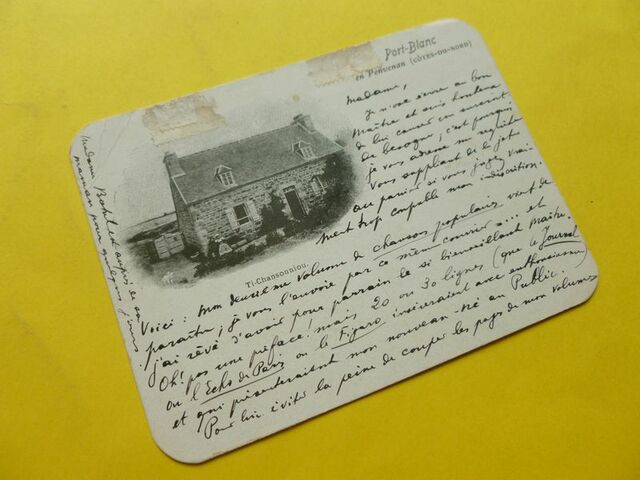 Port-Blanc
en Penvenan (CÔTES-DU-NORD)
Madame,
Je n'ose écrire au bon
Maître et suis honteux
de lui causer un surcroît
de besogne; c'est pourquoi
je vous adresse ma requête
vous suppliant de la jeter
au panier si vous jugez vrai-
ment trop coupable mon indiscrétion.
Ti-Chansonniou.
Voici: mon deuxième volume de chansons populaires vient de
paraître; je vous l'envoie par ce même courrier... et
j'ai rêvé d'avoir pour parrain le si bienveillant Maître.
Oh! pas une préface! mais 20 ou 30 lignes (que le Journal
ou l'Echo de Paris ou le Figaro inséreraient avec enthousiasme)
et qui présenteraient mon nouveau-né au Public.
Pour lui éviter la peine de couper les pages de mon volume
Madame Botrel est auprès de sa
maman pour quelques jours